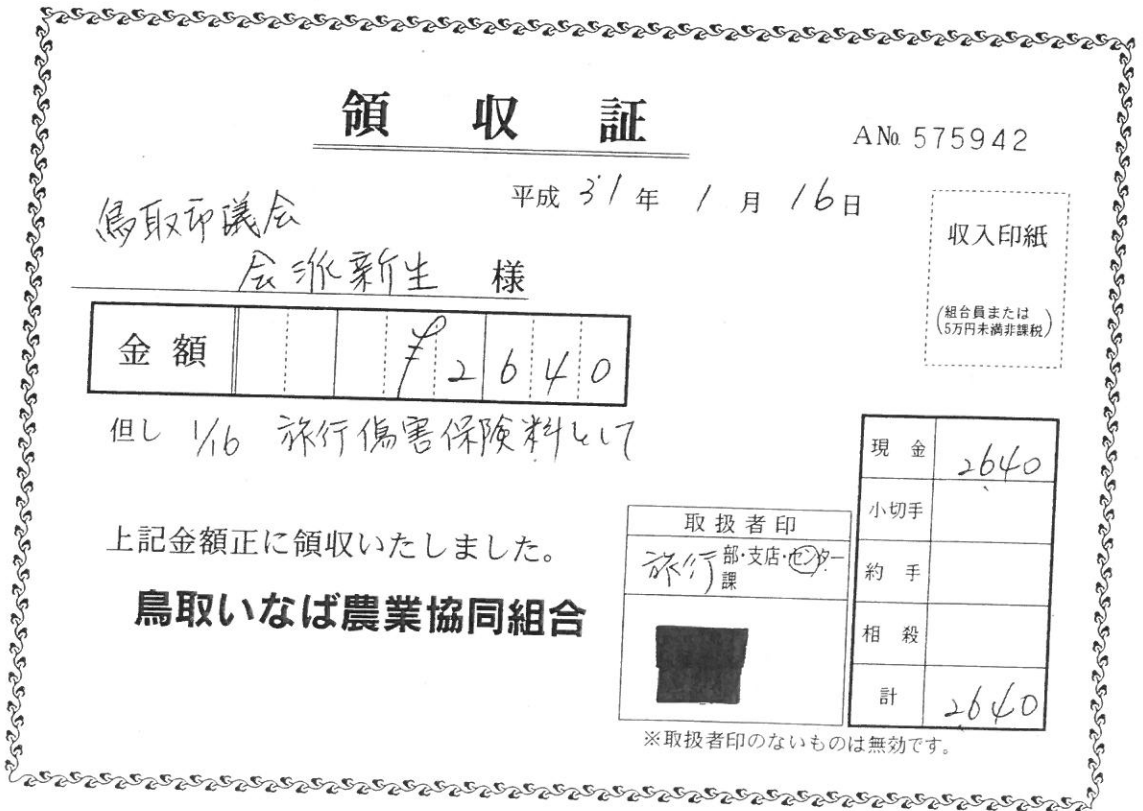 領収証
ANo. 575942
平成 31年 1月 16日
鳥取市議会
会派新生 様
収入印紙
(組合員または
5万円未満非課税)
金額 ¥2640
但し 1/16 旅行傷害保険料として
上記金額正に領収いたしました。
鳥取いなば農業協同組合
取扱者印
旅行 部・支店・センター
課
現金 2640
小切手
約手
相殺
計 2640
※取扱者印のないものは無効です。